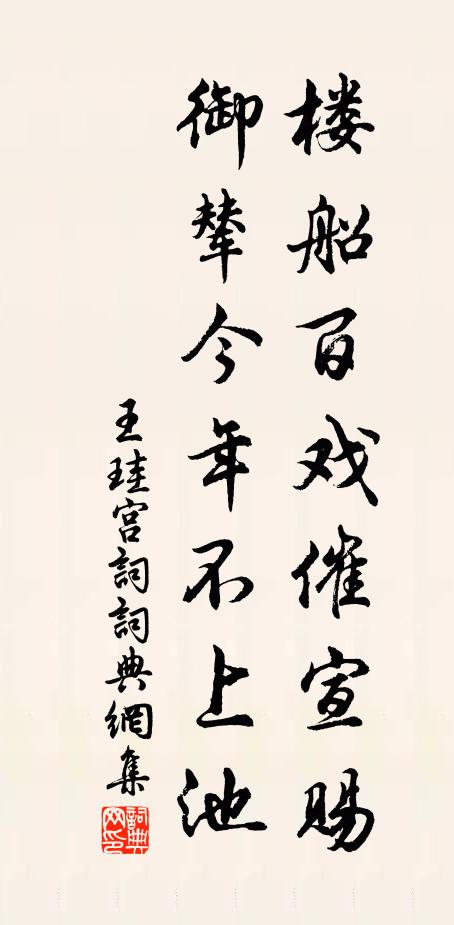 楼船百戏催宣赐
御辇今年不上池
王珪宫詞詞典網集
詞典网印